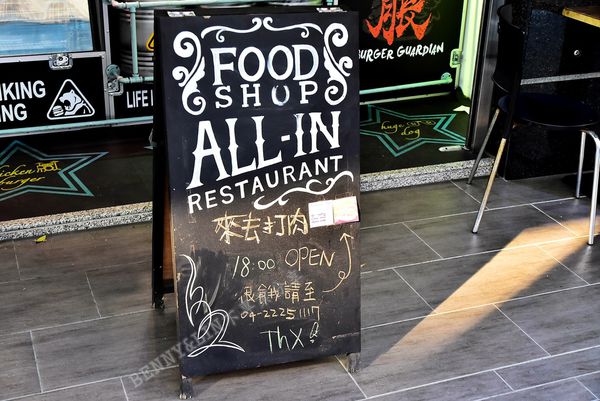 FOOD
SHOP
ALL-IN
RESTAURANT
來去打肉
18:00 OPEN
很餓請至
04-22251117
ThX
KING
NG
LIFE
服
BURGER GUARDIAN
chicken
burger
huge
dog
BENNY